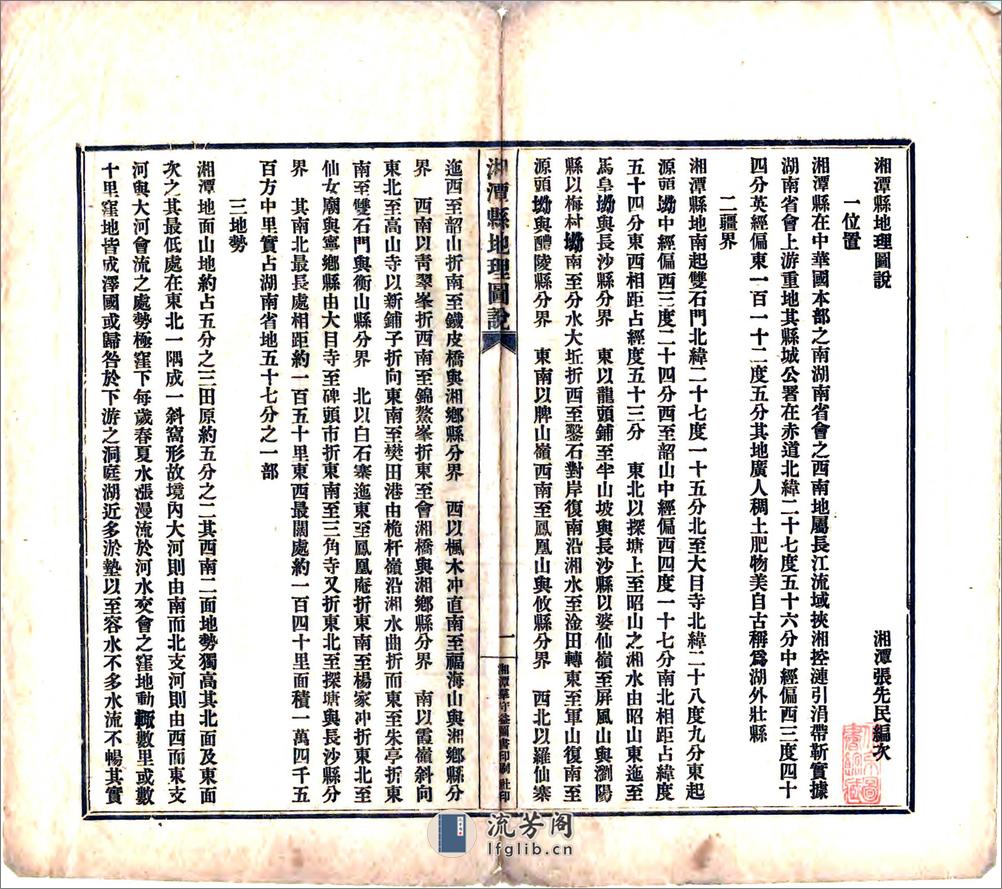 湘潭縣地理圖說 湘潭張先民編次
一位置
湘潭縣在中華國本部之南湖南省會之西南地屬長江流域挾湘控漣引涓帶靳實據
湖南省會上游重地其縣城公署在赤道北緯二十七度五十六分中經偏西三度四十
四分英經偏東一百一十二度五分其地廣人稠土肥物美自古稱爲湖外壯縣
二疆界
湘潭縣地南起雙石門北緯二十七度一十五分北至大目寺北緯二十八度九分東起
源頭坳中經偏西三度二十四分西至韶山中經偏西四度一十七分南北相距占緯度
五十四分東西相距占經度五十三分 東北以探塘上至昭山之湘水由昭山東迤至
馬阜坳與長沙縣分界 東以龍頭鋪至半山坡與長沙縣以婆仙嶺至屏風山與瀏陽
縣以梅村坳南至分水大坵折西至鑿石對岸復南沿湘水至淦田轉東至軍山復南至
源頭坳與醴陵縣分界 東南以脾山嶺西南至鳳凰山與攸縣分界 西北以羅仙寨
湘潭縣地理圖說 一 湘潭華守鎰圖書印刷社印
迤西至韶山折南至鐵皮橋與湘鄉縣分界 西以楓木冲直南至福海山與湘鄉縣分
界 西南以青翠峯折西南至錦鰲峯折東至會湘橋與湘鄉縣分界 南以霞嶺斜向
東北至高山寺以新鋪子折向東南至樊田港由桅杆嶺沿湘水曲折而東至朱亭折東
南至雙石門與衡山縣分界 北以白石寨迤東至鳳凰庵折東南至楊家冲折東北至
仙女廟與寧鄉縣由大目寺至碑頭市折東南至三角寺又折東北至探塘與長沙縣分
界 其南北最長處相距約一百五十里東西最闊處約一百四十里面積一萬四千五
百方中里實占湖南省地五十七分之一部
三地勢
湘潭地面山地約占五分之三田原約五分之二其西南二面地勢獨高其北面及東面
次之其最低處在東北一隅成一斜窩形故境內大河則由南而北支河則由西而東支
河與大河會流之處勢極窪下每歲春夏水漲漫流於河水交會之窪地動輒數里或數
十里窪地皆成澤國或歸咎於下游之洞庭湖近多淤墊以至容水不多水流不暢其實
流芳阁
lfglib.cn